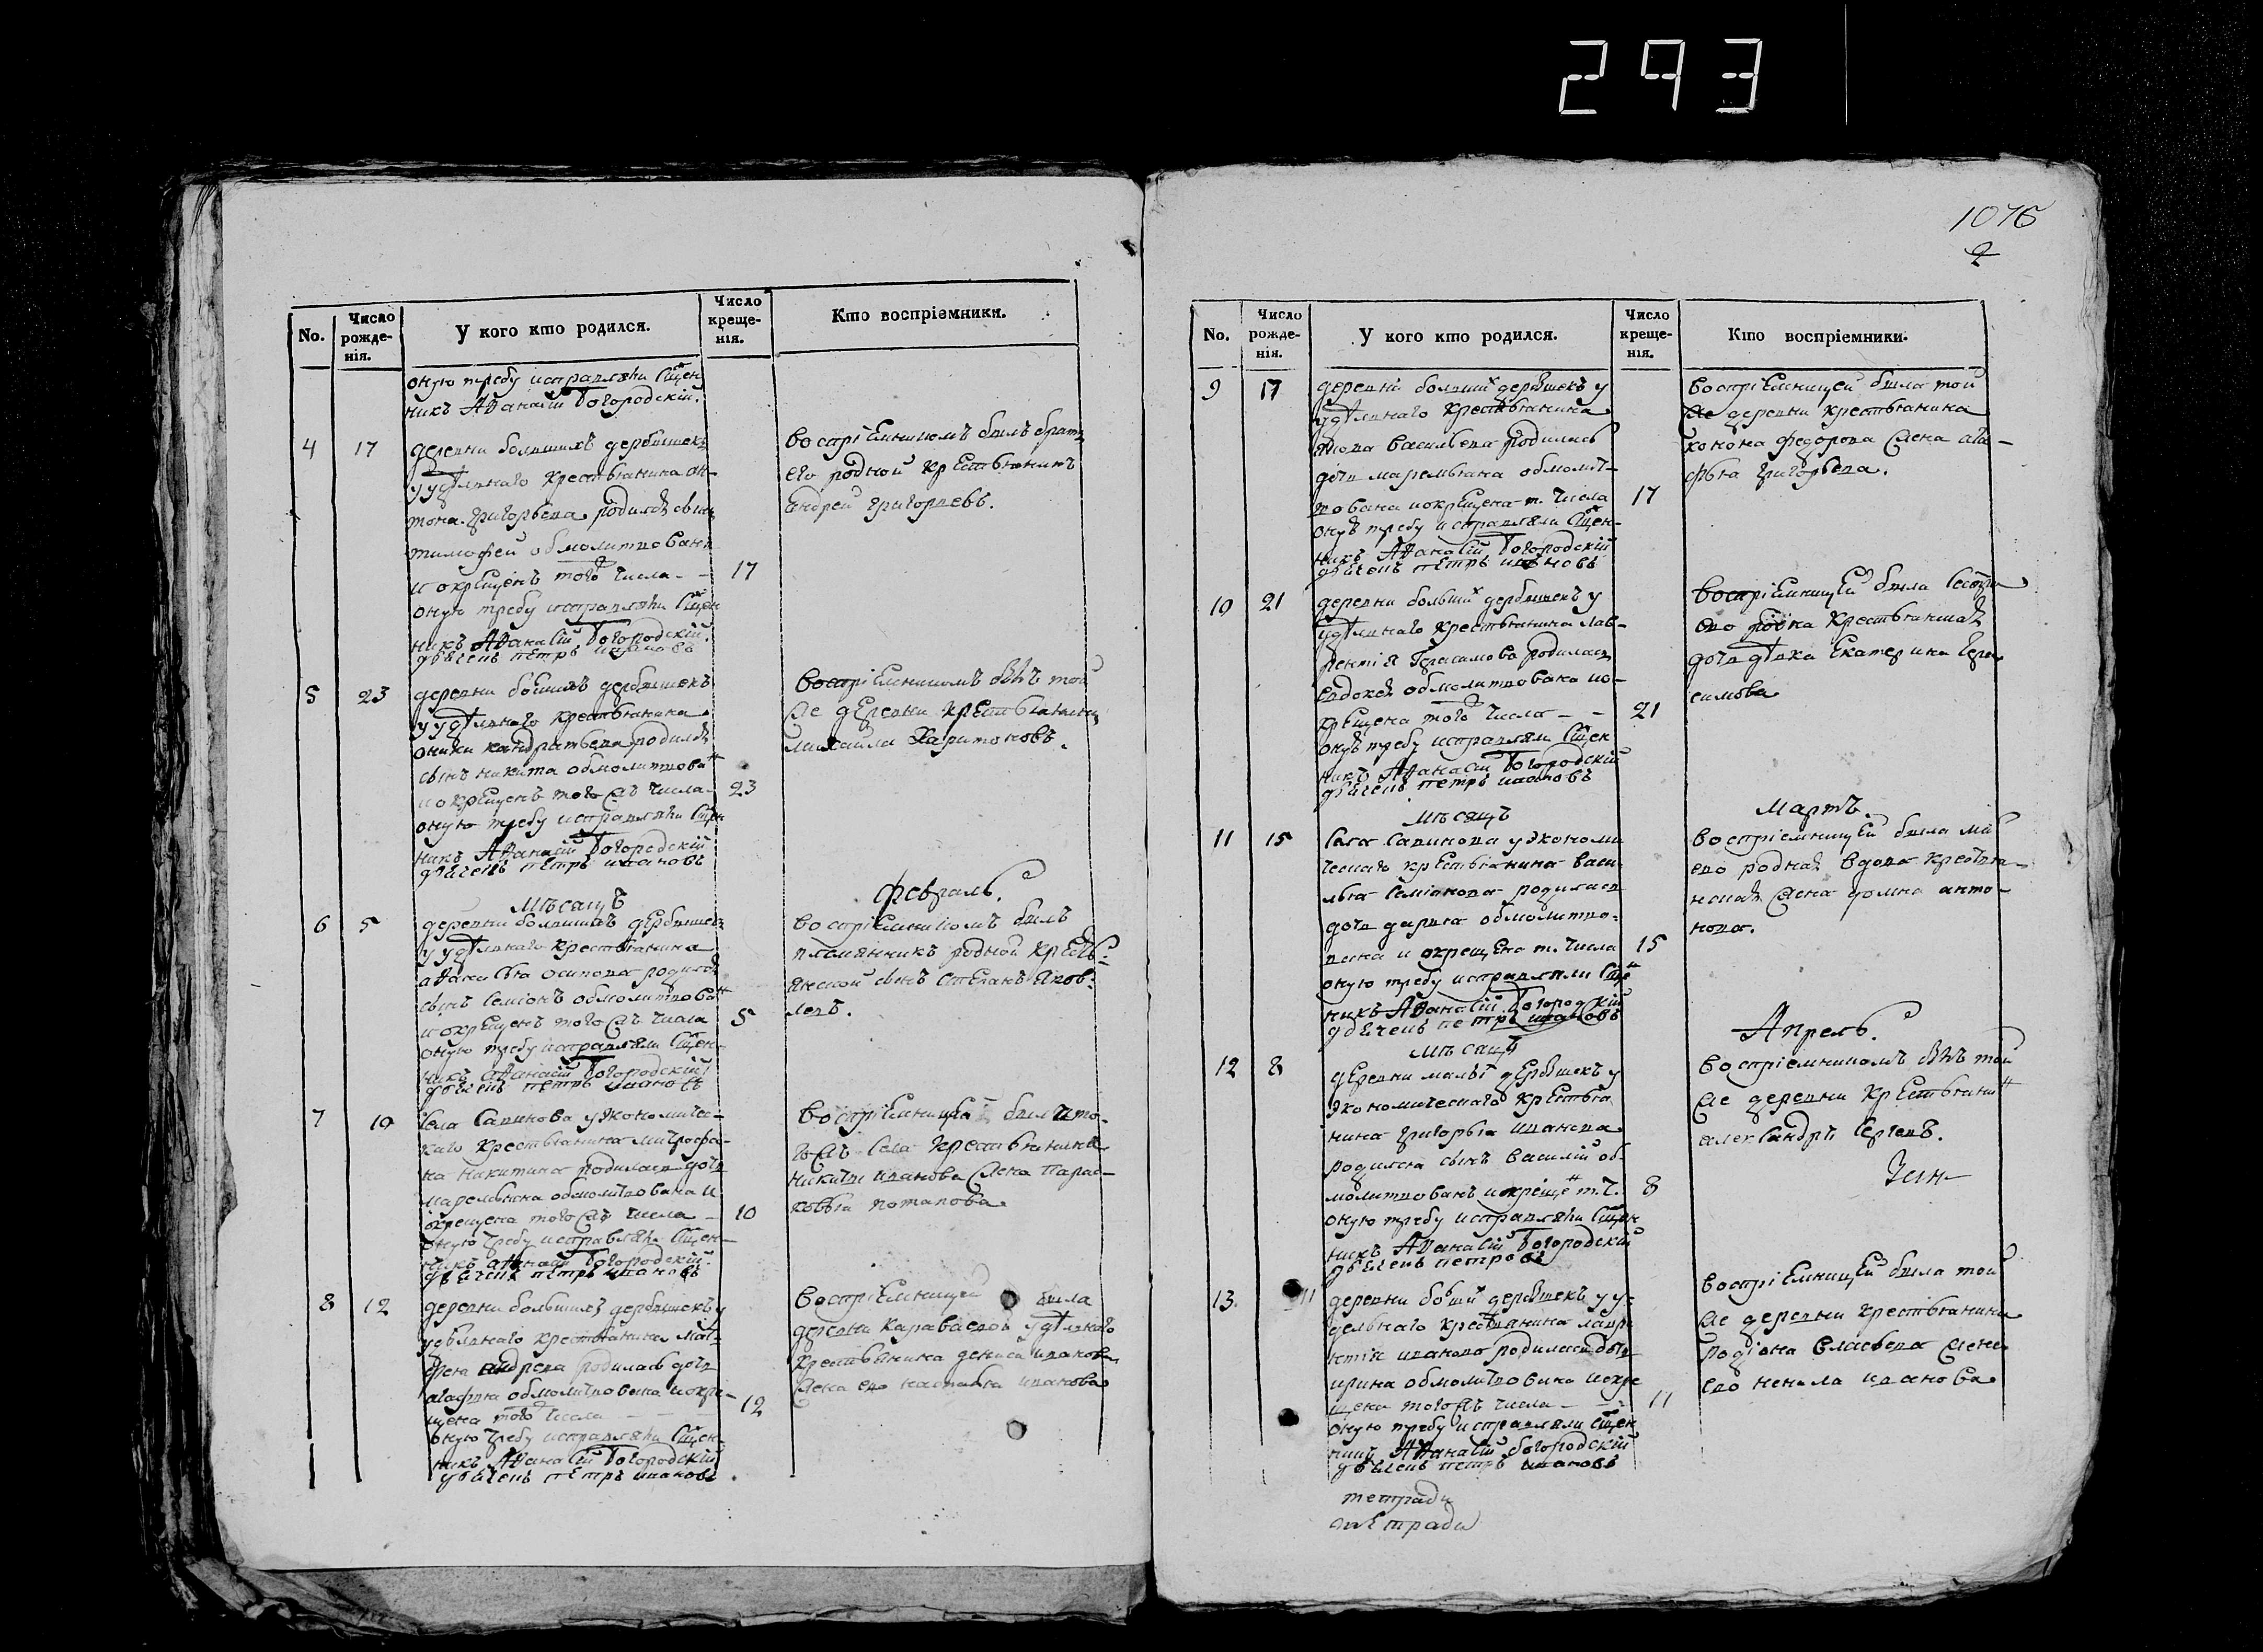 293
No.
Число рожде-нія.
У кого кто родился.
Число креще-нія.
Кто воспріемники.
оную требу исправляли Сщен
никъ Аѳанасій Богородскій.
4 17 деревни большихъ дербышекъ
у удѣлнаго крестьянина ан-
тона григорьева родился сынъ
тимофей обмолитвованъ
и окрещенъ того числа - 17
оную требу исправляли Сщен
никъ Аѳанасій Богородскій.
дьячекъ петръ ивановъ
воспріемникомъ былъ братъ
его родной крестьянинъ
андрей григорьевъ.
5 23 деревни большихъ дербышекъ
у удѣлнаго крестьянина
кандратьева родился
сынъ никита обмолитвова
и окрещенъ тогожъ числа - 23
оную требу исправляли Сщен
никъ Аѳанасій Богородскій
дьячекъ петръ ивановъ
воспріемникомъ былъ той
же деревни крестьянинъ
михайла Харитоновъ.
мѣсяцъ февраль.
6 5 деревни большихъ дербышекъ
у удѣлнаго крестьянина
аѳанасья осипова родился
сынъ Семіонъ обмолитвова
и окрещенъ тогожъ числа 5
оную требу исправляли Сщен-
никъ аѳанасій Богородскій
дьячекъ петръ ивановъ
воспріемникомъ былъ
племянникъ родной кресть-
янской сынъ Степанъ яков-
левъ.
7 10 Села Савинова у экономичес-
каго крестьянина митрофа-
на никитина родилась дочь
маремьяна обмолитвована и
окрещена тогожъ числа - 10
оную требу исправляли Сщен-
никъ аѳанасій Богородскій.
дьячекъ петръ ивановъ
воспріемницей была то-
гожъ Села крестьянина
никиты иванова жена Парас-
ковья потапова
8 12 деревни большихъ дербышекъ у
удѣлнаго крестьянина мат-
фея андреева родилась дочь
агафья обмолитвована и окре-
щена того числа - 12
оную требу исправляли Сщен-
никъ Аѳанасій Богородскій
дьячекъ петръ ивановъ
воспріемницей была
деревни Караваевой удѣлнаго
крестьянина дениса иванова
жена ево настасья иванова
1076
2
No.
Число рожде-нія.
У кого кто родился.
Число креще-нія.
Кто воспріемники.
9 17 деревни большихъ дербышекъ у
удѣлнаго крестьянина
Васильева родилась
дочь маремьяна обмолит-
вована и окрещена т. числа 17
оную требу исправляли Сщен-
никъ Аѳанасій Богородскій
дьячекъ петръ ивановъ
воспріемницей была той
же деревни крестьянина
конона федорова жена ага-
фья григорьева.
10 21 деревни больши дербышекъ у
удѣлнаго крестьянина лав-
рентія Герасимова родилась
евдокея обмолитвована и о-
крещена того числа - - 21
оную требу исправляли Сщен
никъ Аѳанасій Богородскій
дьячекъ петръ ивановъ
воспріемницей была Сестра
ево родна крестьянская
дочь дѣвка Екатерина Гера
симова
мѣсяцъ Мартъ.
11 15 Села Савинова у экономи
ческаго крестьянина васи-
лья Семіонова родилась
дочь дарья обмолитво-
вана и окрещена т. числа 15
оную требу исправляли Сще
никъ Аѳанасій Богородскій
дьячекъ петръ ивановъ
воспріемницей была
ево родная вдова крестья-
нская жена домна анто-
нова.
мѣсяцъ Апрель.
12 8 деревни малы дербышекъ у
экономическаго крестья
нина григорья иванова
родился сынъ василій об-
молитвованъ и креще т. ч. 8
оную требу исправляли Сщен
никъ Аѳанасій Богородскій
дьячекъ петровъ
воспріемникомъ былъ той
же деревни крестьянин
александръ Сергеевъ.
13. 11 деревни больши дербышекъ у у-
дельнаго крестьянина лавре
нтія иванова родилась дочь
ирина обмолитвована и окре
щена тогожъ числа - 11
оную требу исправляли Сщен
никъ Аѳанасій богородскій
дьячекъ петръ ивановъ
воспріемницей была той
же деревни крестьянина
родіона Власьева жена
ево ненила иванова
тетради
тетради